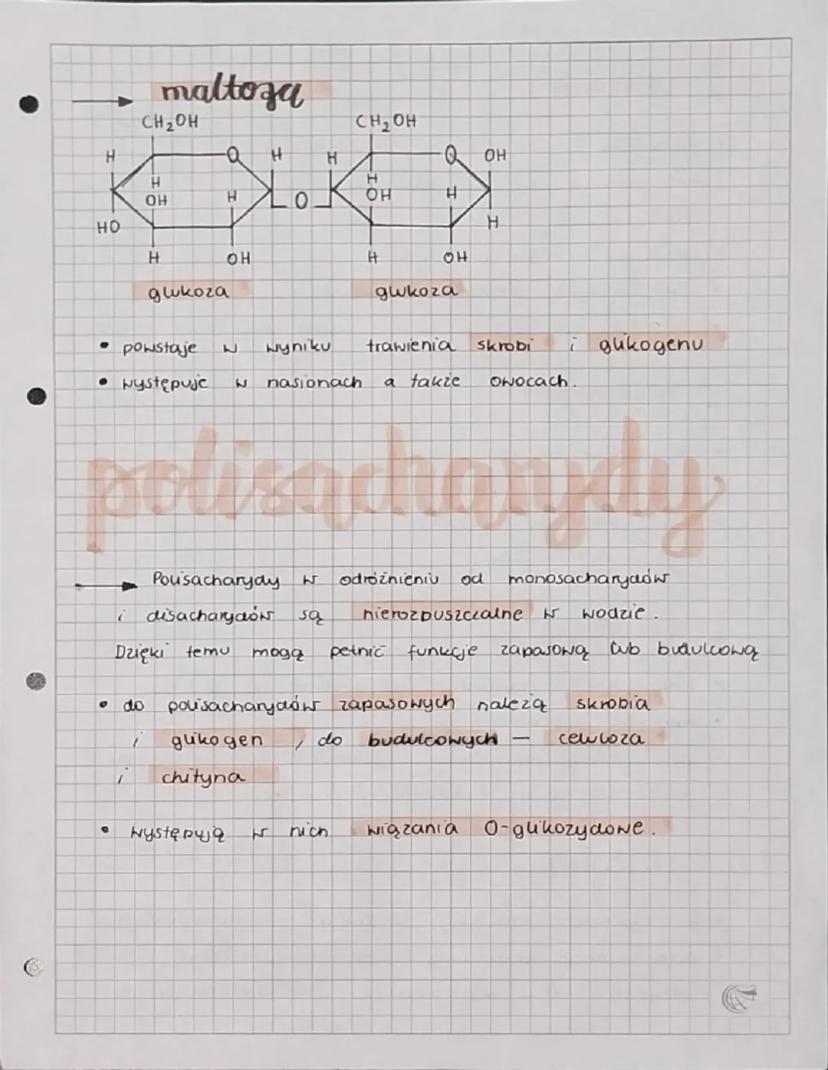 maltoza
CH₂OH CH₂OH
H O H H O OH
H H
OH H O OH H
HO H
H OH H OH
glukoza glukoza
• powstaje w wyniku trawienia skrobi i glikogenu
• występuje w nasionach a także owocach.
polisacharydy
Polisacharydy w odróżnieniu od monosacharydów
i disacharydów są nierozpuszczalne w wodzie.
Dzięki temu mogą pełnić funkcje zapasową lub budulcową
• do polisacharydów zapasowych należą skrobia
i glikogen, do budulcowych – celuloza
i chityna
• występują w nich wiązania O-glikozydowe.